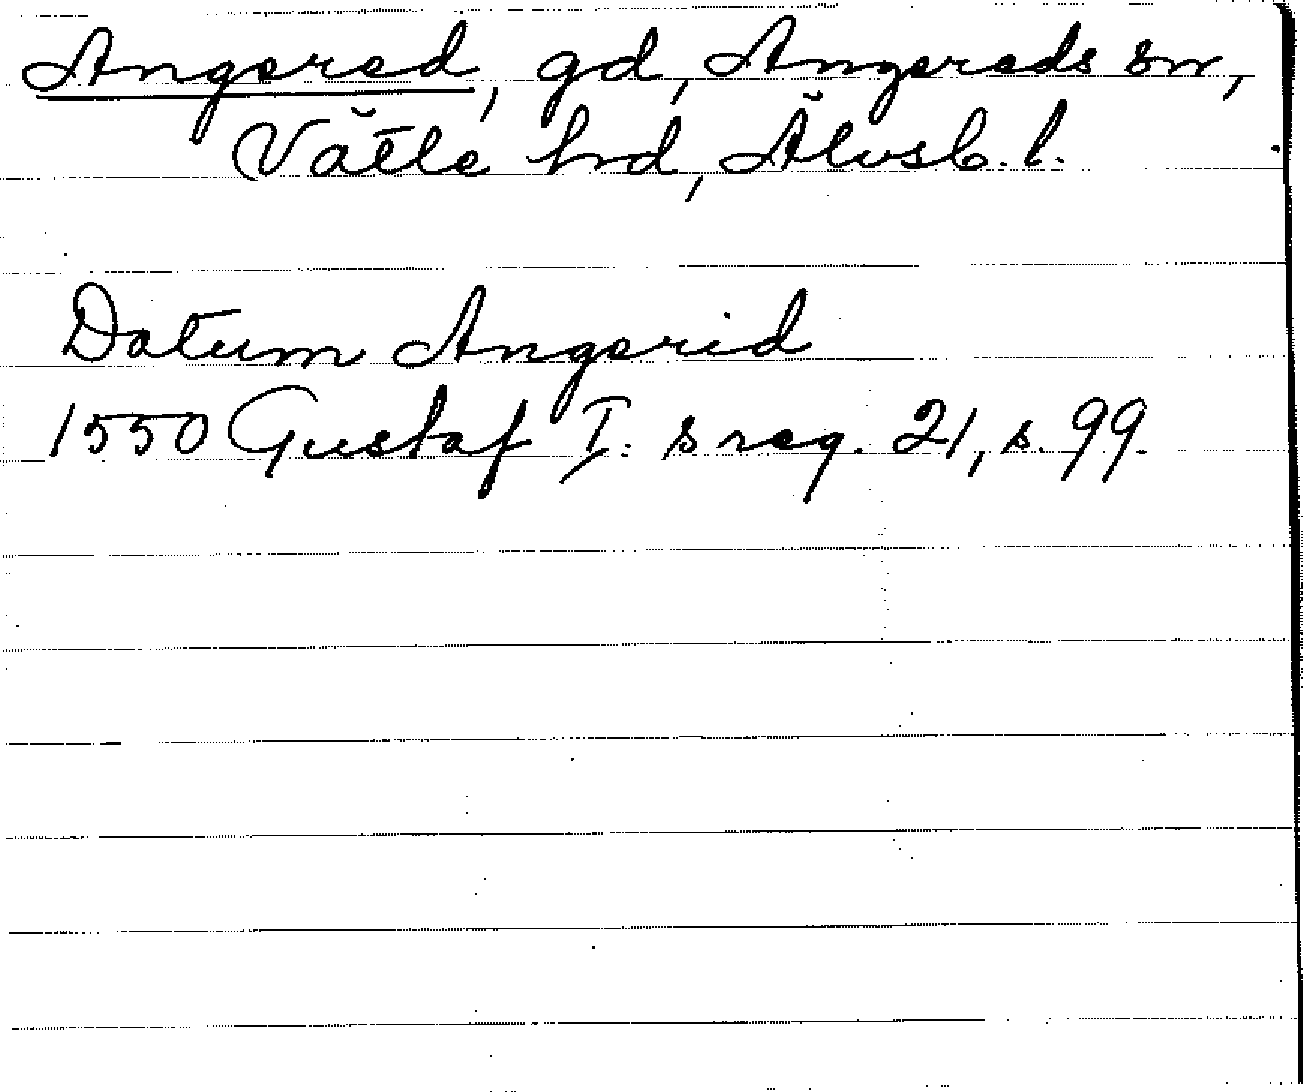 Angered, gd, Angereds sn,
Vätle hd, Älvsb. l.
Datum Angerid
1550 Gustaf I:s reg. 21, s. 99.